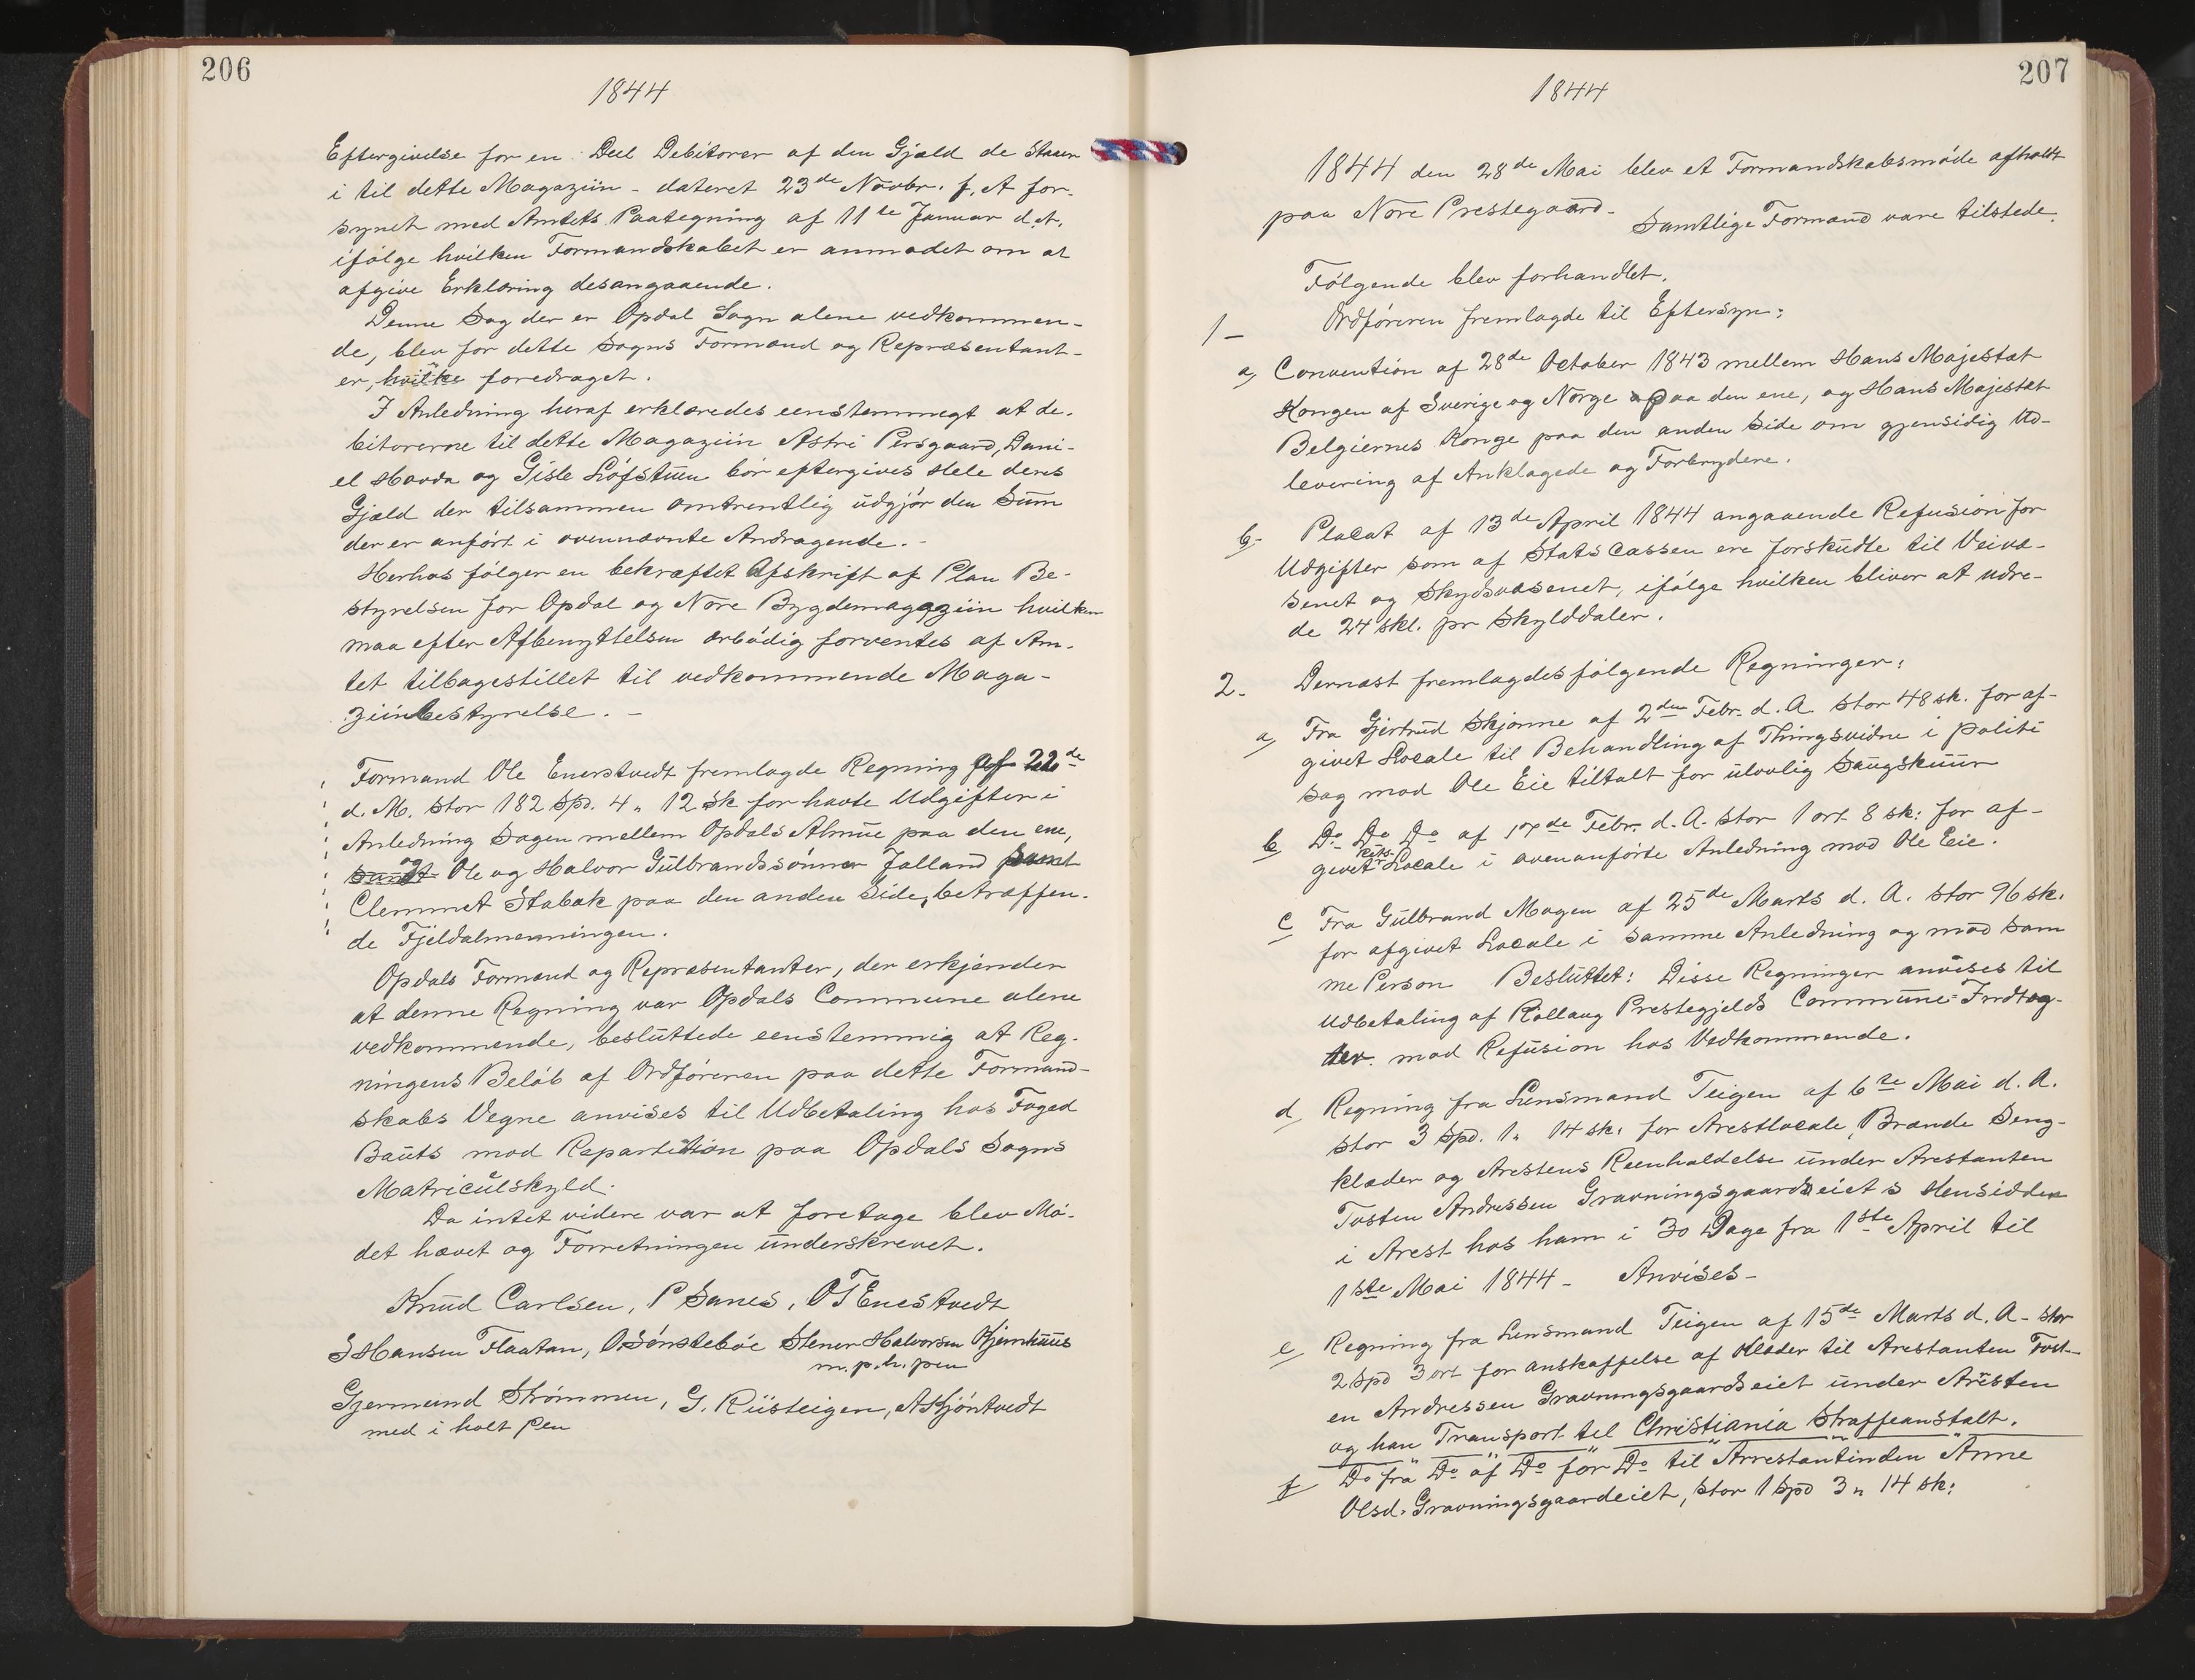 206
1844
Eftergivelse for en Deel Debitorer af den Gjæld de staaer
i til dette Magaziin - dateret 23de Novbr. f. A for-
synet med Amtets Paategning af 11te Januar d.A.
ifölge hvilken Formandskabet er anmodet om at
afgive Erklæring desangaaende.
Denne Sag der er Opdal Sogn alene vedkommen-
de, blev for dette Sogns Formænd og Repræsentant-
er, hvilke foredraget.
I Anledning heraf erklæredes eenstemmigt at de-
bitorerne til dette Magaziin Astri Persgaard, Dani-
el Hovda og Gisle Löfstuen bör eftergives Hele deres
Gjæld der tilsammen omtrentlig udgjör den Sum
der er anfört i ovennævnte Andragende. -
Herhos fölger en bekræftet Afskrift af Plan Be-
styrelsen for Opdal og Nore Bygdemagaziin hvilken
maa efter Afbenyttelsen ærbödig forventes af Am-
tet tilbagestillet til vedkommende Maga-
ziinbestyrelse. -
Formand Ole Enerstvedt fremlagde Regning af 22de
d. M. stor 182 Spd. 4 " 12 sk for havte Udgifter i
Anledning Sagen mellem Opdals Almue paa den ene,
samt og Ole og Halvor Gulbrandssönner Jalland samt
Clemmet Stabæk paa den anden Side, betræffen-
de Fjeldalmenningen.
Opdals Formænd og Repræsentanter, der erkjender
at denne Regning var Opdals Commune alene
vedkommende, besluttede eenstemmig at Reg-
ningens Belöb af Ordföreren paa dette Formand-
skabs Vegne anvises til Udbetaling hos Foged
Bauts mod Repartition paa Opdals Sogns
Matriculskyld.
Da intet videre var at foretage blev Mö-
det hævet og Forretningen underskrevet.
Knud Carlsen, P Sanes, O T Enestvedt
S Hansen Flaatan, O Sönsteböe Stener Halvorsen Hjemhuus
m. p. h. pen
Gjermund Strömmen, G. Ruusteigen, A Kjöntvedt
med i holt Pen
207
1844
1844 den 28de Mai blev et Formandskabsmöde afholdt
paa Nore Prestegaard - Samtlige Formænd vare tilstede.
Fölgende blev forhandlet.
1- Ordföreren fremlagde til Eftersyn:
a, Convention af 28de October 1843 mellem Hans Majestæt
Kongen af Sverige og Norge paa den ene, og Hans Majestæt
Belgiernes Konge paa den anden Side om gjensidig Ud-
levering af Anklagede og Forbrydere.
b- Placat af 13de April 1844 angaaende Refusion for
Udgifter som af Stats Cassen ere forskudte til Veivæ-
senet og Skydsvæsenet, ifölge hvilken bliver at udre-
de 24 skl. pr Skylddaler.
2. Dernæst fremlagdes fölgende Regninger:
a, Fra Gjertrud Skjönne af 2den Febr. d. A. stor 48 sk. for af-
givet Locale til Behandling af Thingsvidne i politi
sag mod Ole Eie tiltalt for ulovlig Saugskuur
b, Do Do Do af 17de Febr. d. A. stor 1 ort 8 sk: for af-
givet Rets-Locale i ovenanförte Anledning mod Ole Eie.
c Fra Gulbrand Mogen af 25de Marts d. A. stor 96 sk.
for afgivet Locale i samme Anledning og mod sam
me Person Besluttet: Disse Regninger anvises til
Udbetaling af Rollaug Prestegjelds Commune-Indtæg-
ter mod Refusion hos Vedkommende.
d Regning fra Lensmand Teigen af 6te Mai d. A.
stor 3 Spd. 1 " 14 sk. for Arestlocale, Brænde Seng-
klæder og Arestens Reenholdelse under Arestanten
Tosten Andressen Gravningsgaardseiet s Hensidden
i Arest hos ham i 30 Dage fra 1ste April til
1ste Mai 1844 - Anvises -
e, Regning fra Lensmand Teigen af 15de Marts d. A - stor
2 Spd 3 ort for anskaffelse af Klæder til Arestanten Tost-
en Andressen Gravningsgaardseiet under Aresten
og han Transport til Christiania Straffeanstalt.
f Do fra Do af Do for Do til Arrestantinden Anne
Olsd. Gravningsgaardeiet, stor 1 Spd 3 " 14 sk: